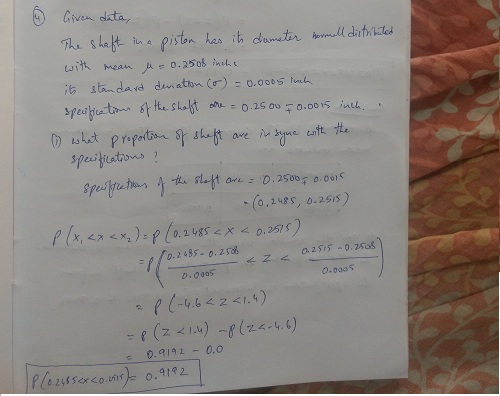 ④ Given data,
The shaft in a piston has its diameter normall distributed
with mean μ = 0.2508 inch.
its standard deviation (σ) = 0.0005 inch
specifications of the shaft are = 0.2500 ∓ 0.0015 inch.
(i) what proportion of shaft are in sync with the
specifications?
specifications of the shaft are = 0.2500 ∓ 0.0015
= (0.2485, 0.2515)
P(x₁ < x < x₂) = P(0.2485 < x < 0.2515)
= P((0.2485 - 0.2508)/0.0005 < Z < (0.2515 - 0.2508)/0.0005)
= P(-4.6 < Z < 1.4)
= P(Z < 1.4) - P(Z < -4.6)
= 0.9192 - 0.0
P(0.2485 < x < 0.2515) = 0.9192